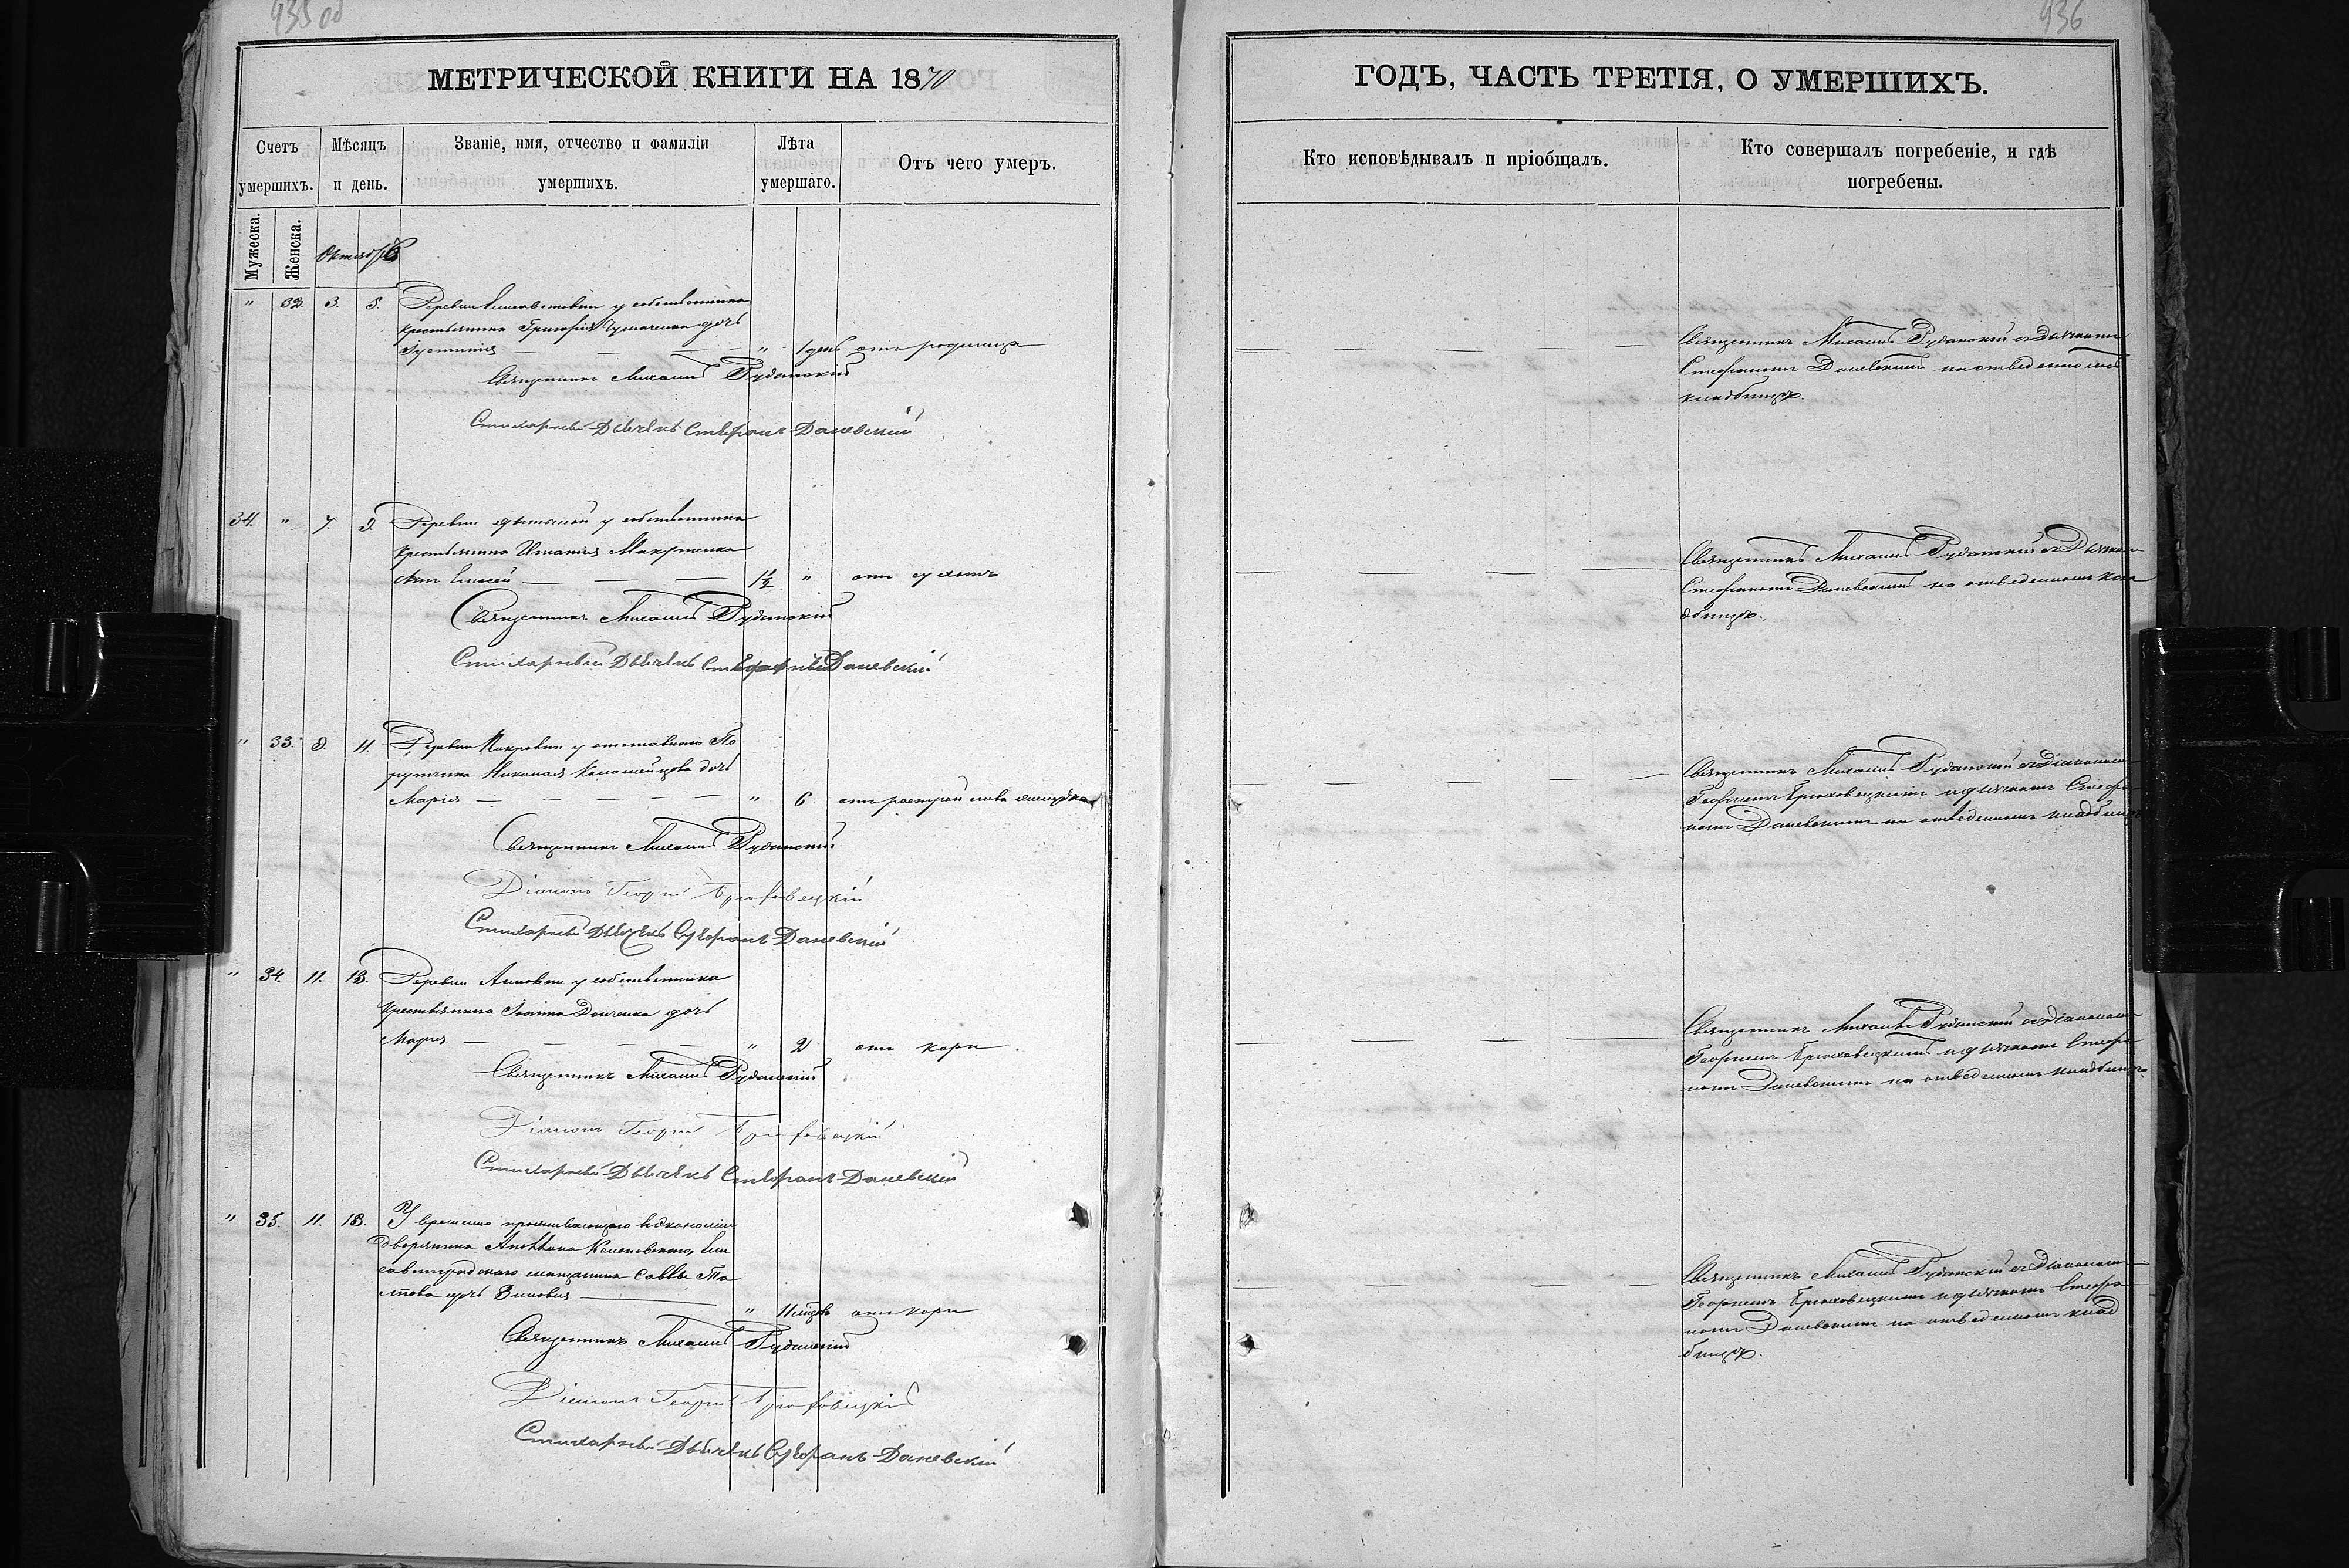 935 об
МЕТРИЧЕСКОЙ КНИГИ НА 1870
Счетъ умершихъ.
Мѣсяцъ и день.
Званіе, имя, отчество и фамиліи умершихъ.
Лѣта умершаго.
Отъ чего умеръ.
Мужеска.
Женска.
Октябрь
" 32. 3. 5. Деревни у собственника
крестьянина Григорія дочь
" 1 день отъ родимца
Священникъ Михаилъ Рудановскій
Стихарный Дьячекъ Стефанъ Даневскій
34. " 7. 9. Деревни у собственника
крестьянина Игнатія Макаренка
сынъ Елисей 1½ " отъ сухотъ
Священникъ Михаилъ Рудановскій
Стихарный Дьячекъ Даневскій
" 33. 9. 11. Деревни у отставнаго По
ручика Николая дочь
Марія " 6 отъ желудка
Священникъ Михаилъ Рудановскій
Діаконъ Георгій Брюховецкій
Стихарный Дьячекъ Стефанъ Даневскій
" 34. 11. 13. Деревни Анновки у собственника
крестьянина Іоанна Донченка дочь
Марія " 2 отъ кори
Священникъ Михаилъ Рудановскій
Діаконъ Георгій Брюховецкій
Стихарный Дьячекъ Стефанъ Даневскій
" 35. 11. 13. У временно проживающаго въ экономіи
дворянина Ели
саветградскаго мещанина Саввы
дочь Зиновія " 11 мѣцовъ отъ кори
Священникъ Михаилъ Рудановскій
Діаконъ Георгій Брюховецкій
Стихарный Дьячекъ Стефанъ Даневскій
936
ГОДЪ, ЧАСТЬ ТРЕТІЯ, О УМЕРШИХЪ.
Кто исповѣдывалъ и пріобщалъ.
Кто совершалъ погребеніе, и гдѣ
погребены.
Священникъ Михаилъ Рудановскій съ Дьячкомъ
Стефаномъ Даневскимъ на отведенномъ
кладбищѣ.
Священникъ Михаилъ Рудановскій съ Дьячкомъ
Стефаномъ Даневскимъ на отведенномъ кла
дбищѣ.
Священникъ Михаилъ Рудановскій съ Діакономъ
Георгіемъ Брюховецкимъ и дьячкомъ Стефа
номъ Даневскимъ на отведенномъ кладбищѣ
Священникъ Михаилъ Рудановскій съ Діакономъ
Георгіемъ Брюховецкимъ и дьячкомъ Стефа
номъ Даневскимъ на отведенномъ кладбищѣ
Священникъ Михаилъ Рудановскій съ Діакономъ
Георгіемъ Брюховецкимъ и дьячкомъ Стефа
номъ Даневскимъ на отведенномъ клад
бищѣ.